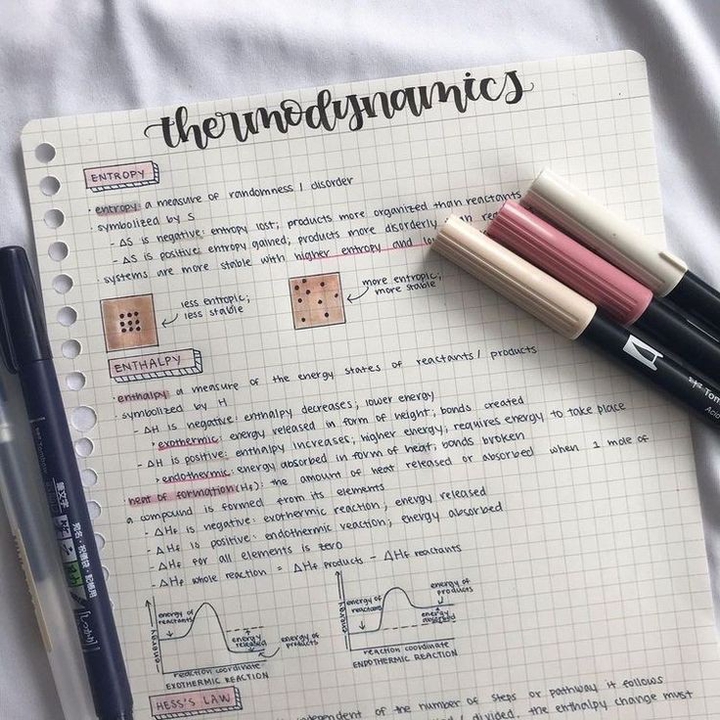 thermodynamics
ENTROPY
· entropy: a measure of randomness / disorder
· symbolized by S
- ΔS is negative: entropy lost; products more organized than reactants
- ΔS is positive: entropy gained; products more disorderly than
· systems are more stable with higher entropy and
less entropic;
less stable
more entropic;
more stable
ENTHALPY
· enthalpy: a measure of the energy states of reactants / products
· symbolized by H
- ΔH is negative: enthalpy decreases; lower energy
exothermic: energy released in form of height; bonds created
- ΔH is positive: enthalpy increases; higher energy; requires energy to take place
endothermic: energy absorbed in form of heat; bonds broken
· heat of formation (Hf): the amount of heat released or absorbed when 1 mole of
a compound is formed from its elements
- ΔHf is negative: exothermic reaction; energy released
- ΔHf is positive: endothermic reaction; energy absorbed
- ΔHf for all elements is zero
- ΔHf whole reaction = ΔHf products - ΔHf reactants
energy
energy of
reactants
energy
released
energy of
products
reaction coordinate
EXOTHERMIC REACTION
energy
energy of
reactants
energy of
products
energy
absorbed
reaction coordinate
ENDOTHERMIC REACTION
HESS'S LAW
of the number of steps or pathway it follows
divided, the enthalpy change must
筆文字
宛名・祝儀袋・記帳用
Tom